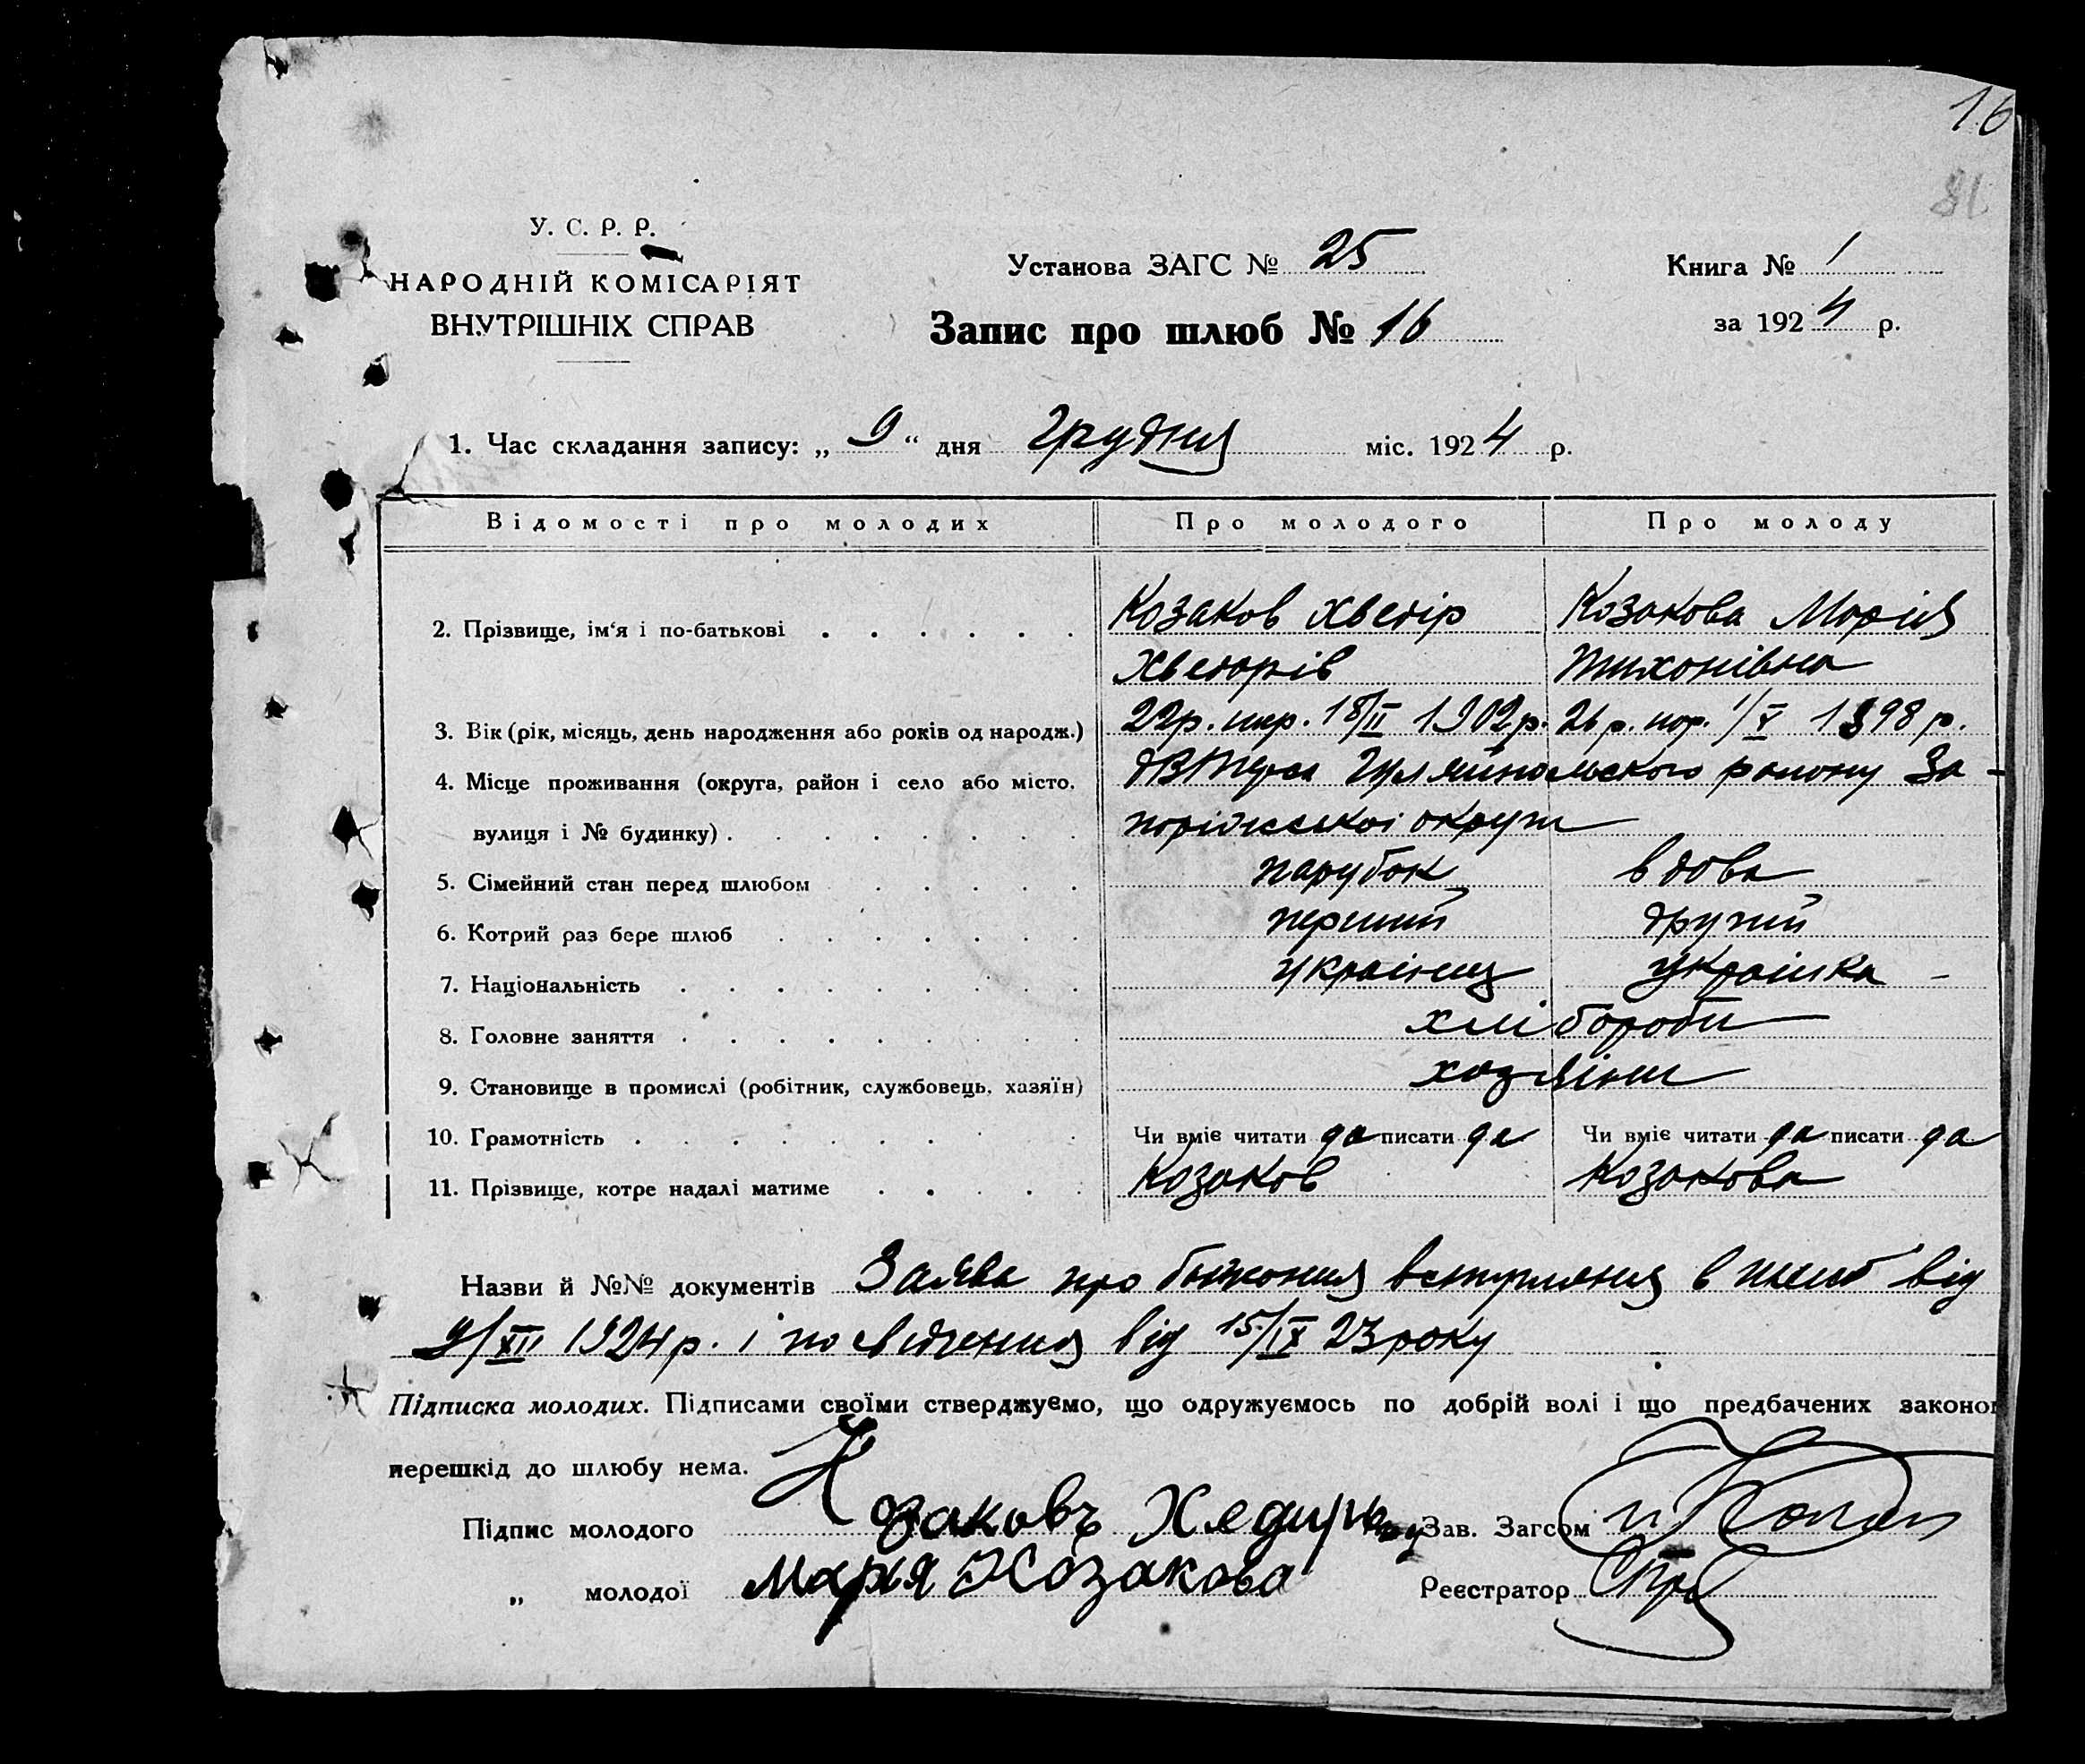 16
81
У. С. Р. Р.
НАРОДНІЙ КОМІСАРІЯТ
ВНУТРІШНІХ СПРАВ
Установа ЗАГС № 25
Книга № 1
Запис про шлюб № 16
за 1924 р.
1. Час складання запису: „ 9 “ дня Грудня міс. 1924 р.
Відомості про молодих Про молодого Про молоду
2. Прізвище, ім‘я і по-батькові Козаков Хведір Козакова Марія
Хведорів Тихонівна
3. Вік (рік, місяць, день народження або років од народж.) 22 р. 18/II 1902 р. 26 р. 1/X 1898 р.
4. Місце проживання (округа, район і село або місто, Гуляйпольского району За-
вулиця і № будинку) порізської округи
5. Сімейний стан перед шлюбом парубок вдова
6. Котрий раз бере шлюб перший другий
7. Національність українец українка
8. Головне заняття хлібороби
9. Становище в промислі (робітник, службовець, хазяїн) хозяіни
10. Грамотність Чи вміє читати да писати да Чи вміє читати да писати да
11. Прізвище, котре надалі матиме Козаков Козакова
Назви й №№ документів Заява про бажання вступления в шлюб від
9/XII 1924 р. і посвідчення від 15/IX 23 року
Підписка молодих. Підписами своїми стверджуємо, що одружуємось по добрій волі і що предбачених законом
перешкід до шлюбу нема.
Підпис молодого Козаковъ Хедиръ Зав. Загсом
„ молодої Мария Козакова Реєстратор